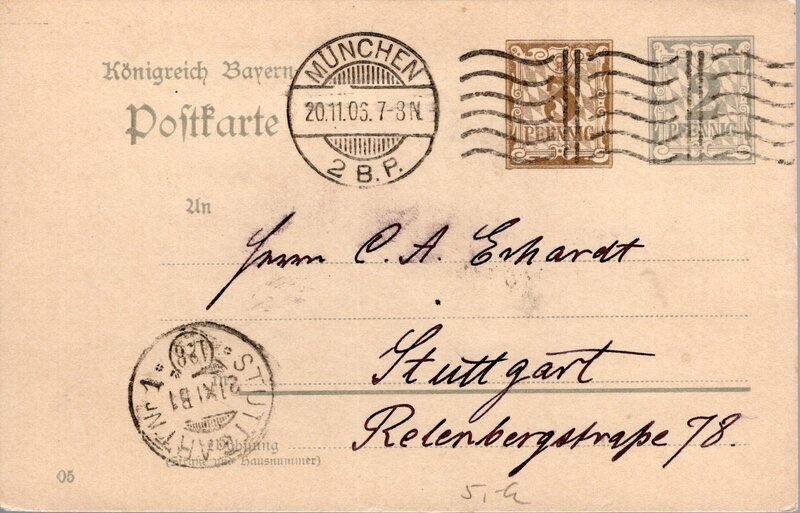 Königreich Bayern
Postkarte
MÜNCHEN
20.11.06. 7-8 N.
2 B.P.
3
PFENNIG
2
PFENNIG
An
Herrn C. A. Erhardt
Stuttgart
Relenbergstraße 78.
STUTTGART Nr. 1
Wohnung
(Straße und Hausnummer)
05